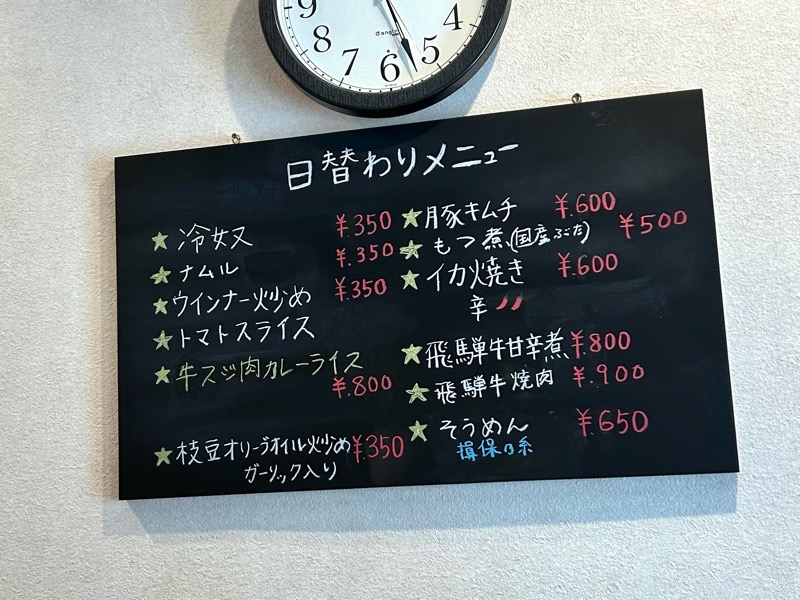 9
8
7
6
5
4
日替わりメニュー
★冷奴 ¥.350
★ナムル ¥.350
★ウインナー炒め ¥.350
★トマトスライス
★牛スジ肉カレーライス
¥.800
★枝豆オリーブオイル炒め ¥350
ガーリック入り
★豚キムチ ¥.600
★もつ煮(国産ぶた) ¥500
★イカ焼き ¥.600
辛
★飛騨牛甘辛煮 ¥800
★飛騨牛焼肉 ¥.900
★そうめん ¥.650
揖保乃糸